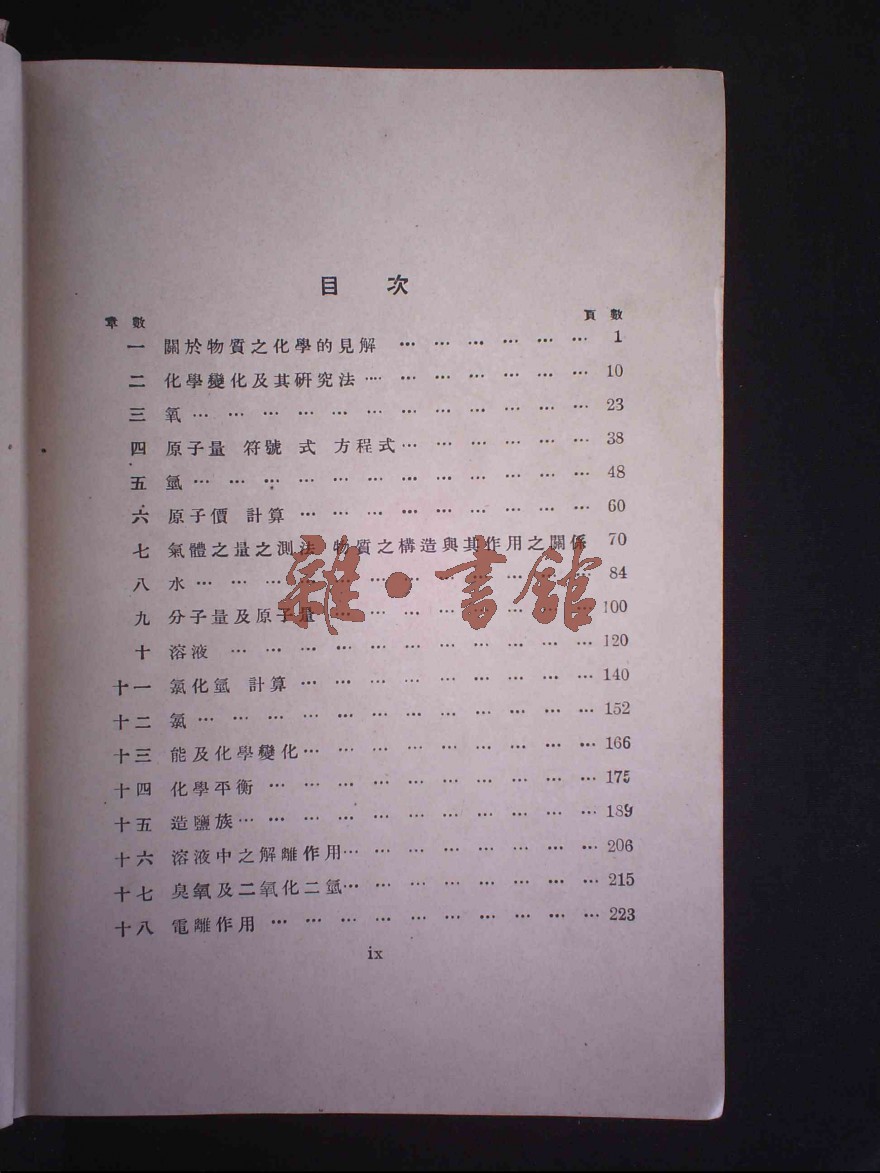 目 次
章數 頁數
一 關於物質之化學的見解 … … … … … … 1
二 化學變化及其研究法 … … … … … … … 10
三 氧 … … … … … … … … … … … … 23
四 原子量 符號 式 方程式 … … … … … … 38
五 氫 … … … … … … … … … … … … 48
六 原子價 計算 … … … … … … … … … 60
七 氣體之量之測法 物質之構造與其作用之關係 70
八 水 … … … … … … … … … … … … 84
九 分子量及原子量 … … … … … … … … 100
十 溶液 … … … … … … … … … … … 120
十一 氯化氫 計算 … … … … … … … … … 140
十二 氯 … … … … … … … … … … … … 152
十三 能及化學變化 … … … … … … … … … 166
十四 化學平衡 … … … … … … … … … … 175
十五 造鹽族 … … … … … … … … … … … 189
十六 溶液中之解離作用 … … … … … … … … 206
十七 臭氧及二氧化二氫 … … … … … … … … 215
十八 電離作用 … … … … … … … … … … 223
ix
雜·書館